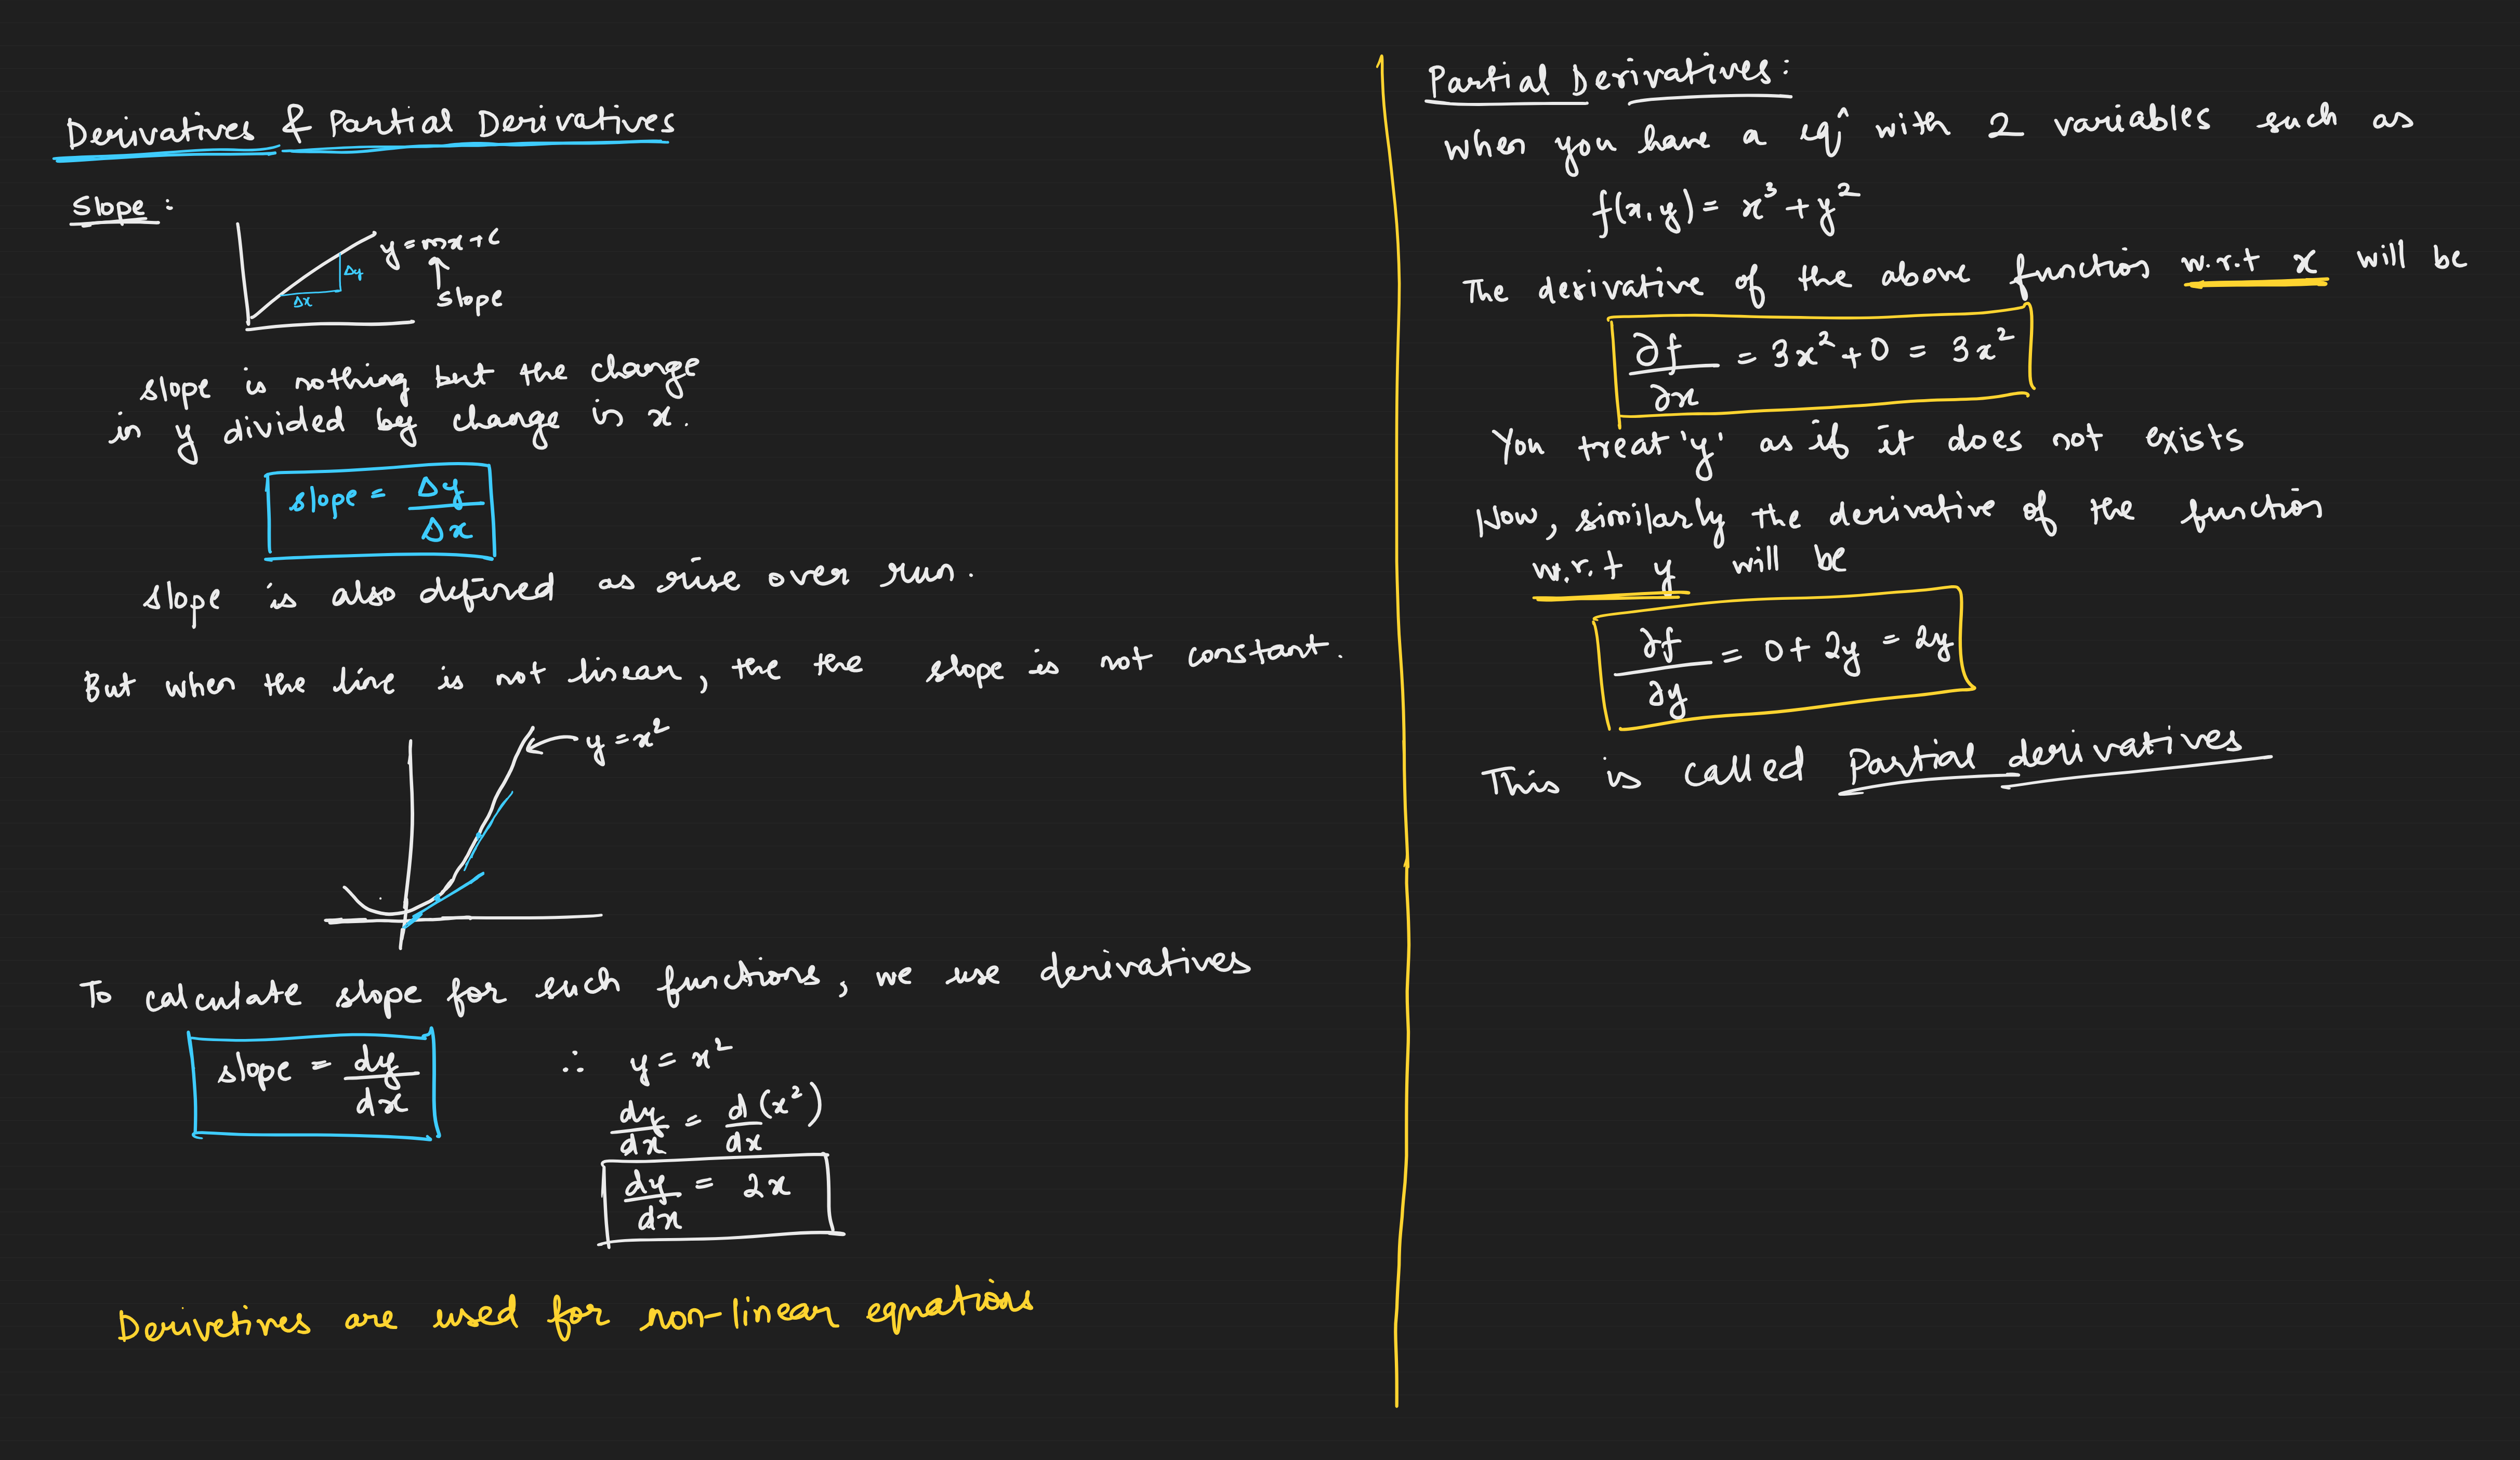 Derivatives & Partial Derivatives
Slope :
y = mx + c
Δy
Δx
slope
slope is nothing but the change
in y divided by change in x.
slope = Δy/Δx
slope is also defined as rise over run.
But when the line is not linear, the the slope is not constant.
y = x²
To calculate slope for such functions, we use derivatives
slope = dy/dx
∴ y = x²
dy/dx = d/dx (x²)
dy/dx = 2x
Derivetives are used for non-linear equations
Partial Derivatives:
When you have a eqn̂ with 2 variables such as
f(x,y) = x³ + y²
The derivative of the above function w.r.t x will be
∂f/∂x = 3x² + 0 = 3x²
You treat 'y' as if it does not exists
Now, similarly the derivative of the function
w.r.t y will be
∂f/∂y = 0 + 2y = 2y
This is called Partial derivatives